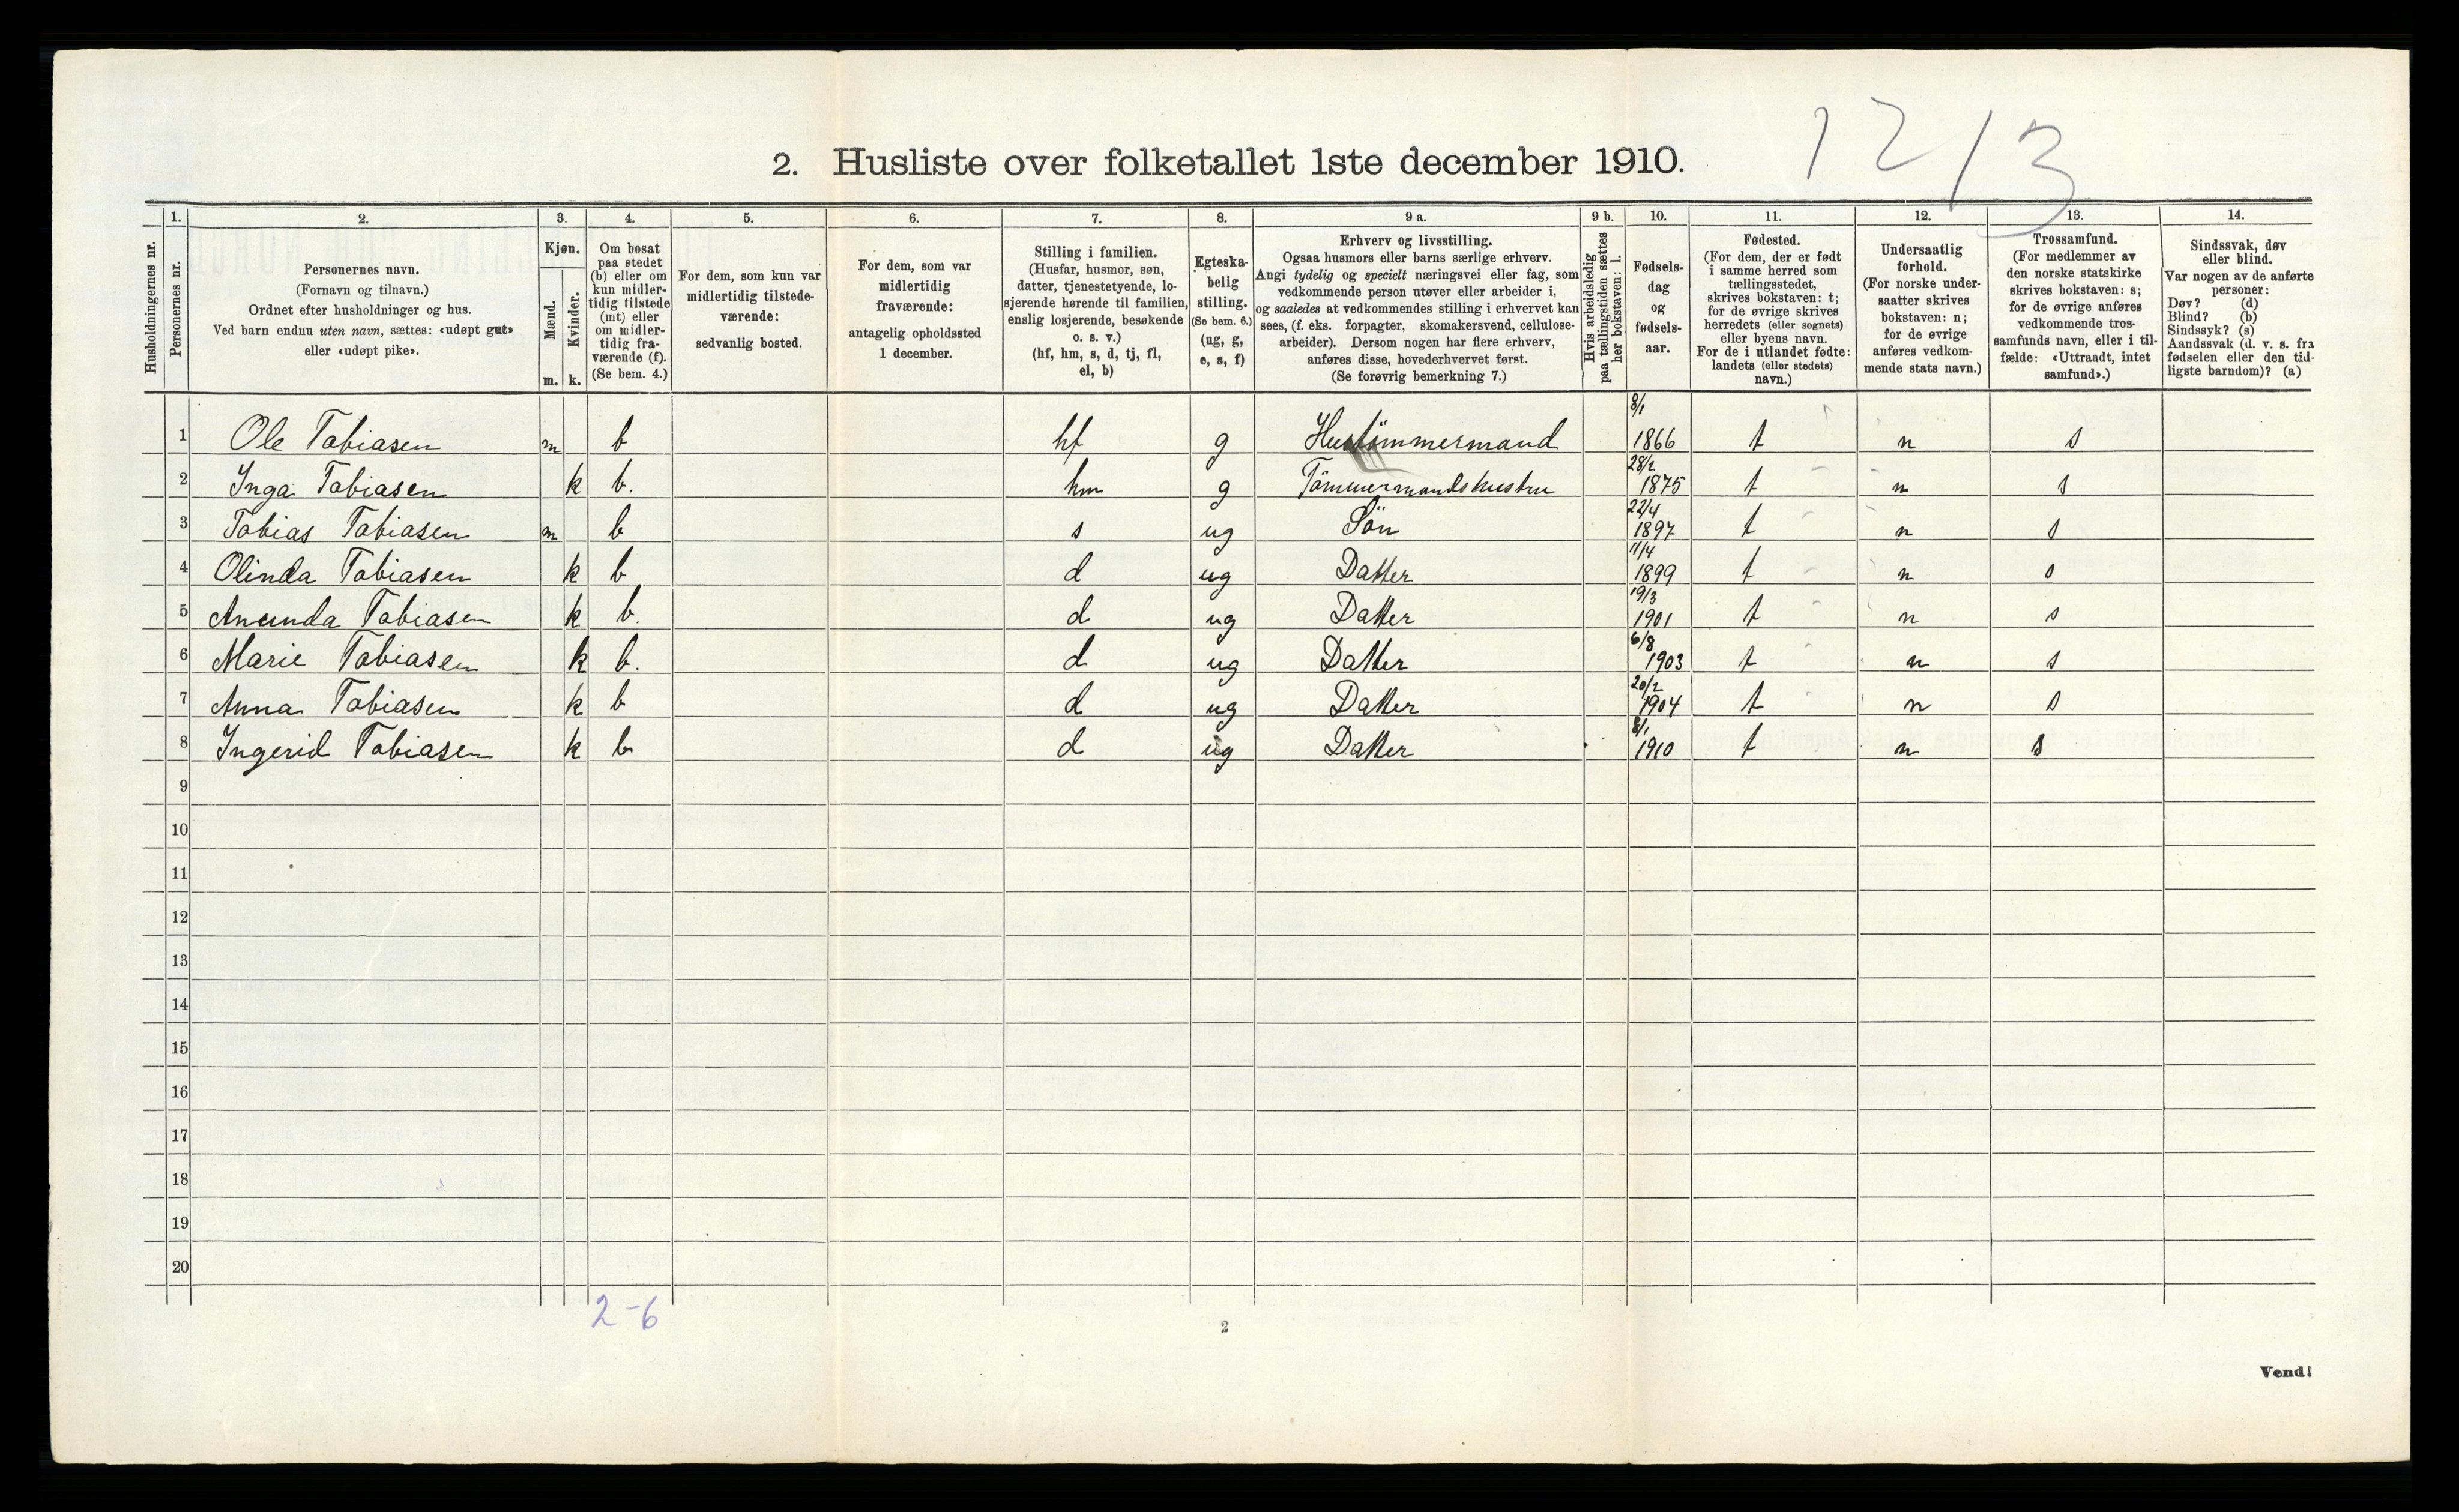 12/3
2. Husliste over folketallet 1ste december 1910.
Husholdningernes nr.
1.
Personernes nr.
2.
Personernes navn.
(Fornavn og tilnavn.)
Ordnet efter husholdninger og hus.
Ved barn endnu uten navn, sættes: «udøpt gut»
eller «udøpt pike».
3.
Kjøn.
Mænd.
m.
Kvinder.
k.
4.
Om bosat
paa stedet
(b) eller om
kun midler-
tidig tilstede
(mt) eller
om midler-
tidig fra-
værende (f).
(Se bem. 4.)
5.
For dem, som kun var
midlertidig tilstede-
værende:
sedvanlig bosted.
6.
For dem, som var
midlertidig
fraværende:
antagelig opholdssted
1 december.
7.
Stilling i familien.
(Husfar, husmor, søn,
datter, tjenestetyende, lo-
sjerende hørende til familien,
enslig losjerende, besøkende
o. s. v.)
(hf, hm, s, d, tj, fl,
el, b)
8.
Egteska-
belig
stilling.
(Se bem. 6.)
(ug, g,
e, s, f)
9 a.
Erhverv og livsstilling.
Ogsaa husmors eller barns særlige erhverv.
Angi tydelig og specielt næringsvei eller fag, som
vedkommende person utøver eller arbeider i,
og saaledes at vedkommendes stilling i erhvervet kan
sees, (f. eks. forpagter, skomakersvend, cellulose-
arbeider). Dersom nogen har flere erhverv,
anføres disse, hovederhvervet først.
(Se forøvrig bemerkning 7.)
9 b.
Hvis arbeidsledig
paa tællingstiden sættes
her bokstaven: l.
10.
Fødsels-
dag
og
fødsels-
aar.
11.
Fødested.
(For dem, der er født
i samme herred som
tællingsstedet,
skrives bokstaven: t;
for de øvrige skrives
herredets (eller sognets)
eller byens navn.
For de i utlandet fødte:
landets (eller stedets)
navn.)
12.
Undersaatlig
forhold.
(For norske under-
saatter skrives
bokstaven: n;
for de øvrige
anføres vedkom-
mende stats navn.)
13.
Trossamfund.
(For medlemmer av
den norske statskirke
skrives bokstaven: s;
for de øvrige anføres
vedkommende tros-
samfunds navn, eller i til-
fælde: «Uttraadt, intet
samfund».)
14.
Sindssvak, døv
eller blind.
Var nogen av de anførte
personer:
Døv? (d)
Blind? (b)
Sindssyk? (s)
Aandssvak (d. v. s. fra
fødselen eller den tid-
ligste barndom)? (a)
1 Ole Tobiasen m b hf g Hustömmermand 8/1 1866 t n s
2 Inga Tobiasen k b. hm g Tömmermandshustru 28/2 1875 t n s
3 Tobias Tobiasen m b s ug Sön 22/4 1897 t n s
4 Olinda Tobiasen k b d ug Datter 11/4 1899 t n s
5 Anunda Tobiasen k b. d ug Datter 19/3 1901 t n s
6 Marie Tobiasen k b. d ug Datter 6/8 1903 t n s
7 Anna Tobiasen k b d ug Datter 20/2 1904 t n s
8 Ingerid Tobiasen k b d ug Datter 8/1 1910 t n s
9
10
11
12
13
14
15
16
17
18
19
20
2-6
2
Vend!